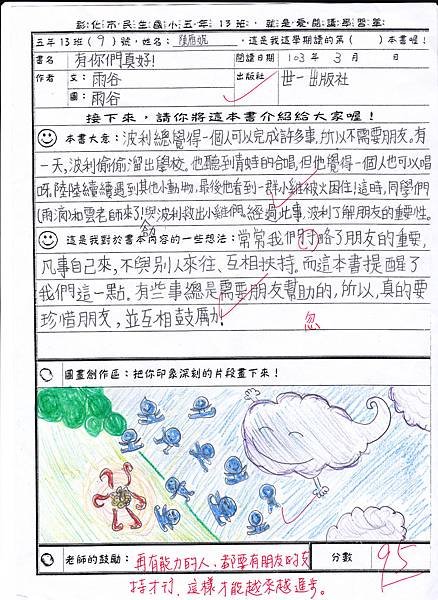 彰化市民生國小五年13班，就是愛閱讀學習單
五年13班(9)號，姓名：陳，這是我這學期讀的第( )本書喔！
書名 有你們真好！ 閱讀日期 103年3月 日
作者 文：雨谷 出版社 世一出版社
圖：雨谷
接下來，請你將這本書介紹給大家喔！
本書大意：波利總覺得一個人可以完成許多事，所以不需要朋友。有
一天，波利偷偷溜出學校。他聽到青蛙的合唱，但他覺得一個人也可以唱
呀。陸陸續續遇到其他小動物，最後他看到一群小雞被火困住！這時，同學們
(雨滴)和雲老師來了！與波利救出小雞們。經過此事，波利了解朋友的重要性。
這是我對於書本內容的一些想法：常常我們略了朋友的重要，
凡事自己來，不與別人來往、互相扶持。而這本書提醒了
我們這一點。有些事總是需要朋友幫助的，所以，真的要
珍惜朋友，並互相鼓厲
忽
圖畫創作區：把你印象深刻的片段畫下來！
老師的鼓勵：再有能力的人，都要有朋友的支
持才行，這樣才能越來越進步。
分數 95